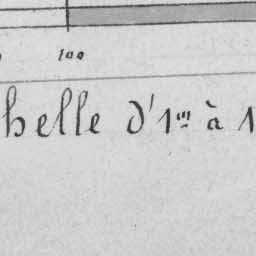 100
helle d'1m à 1